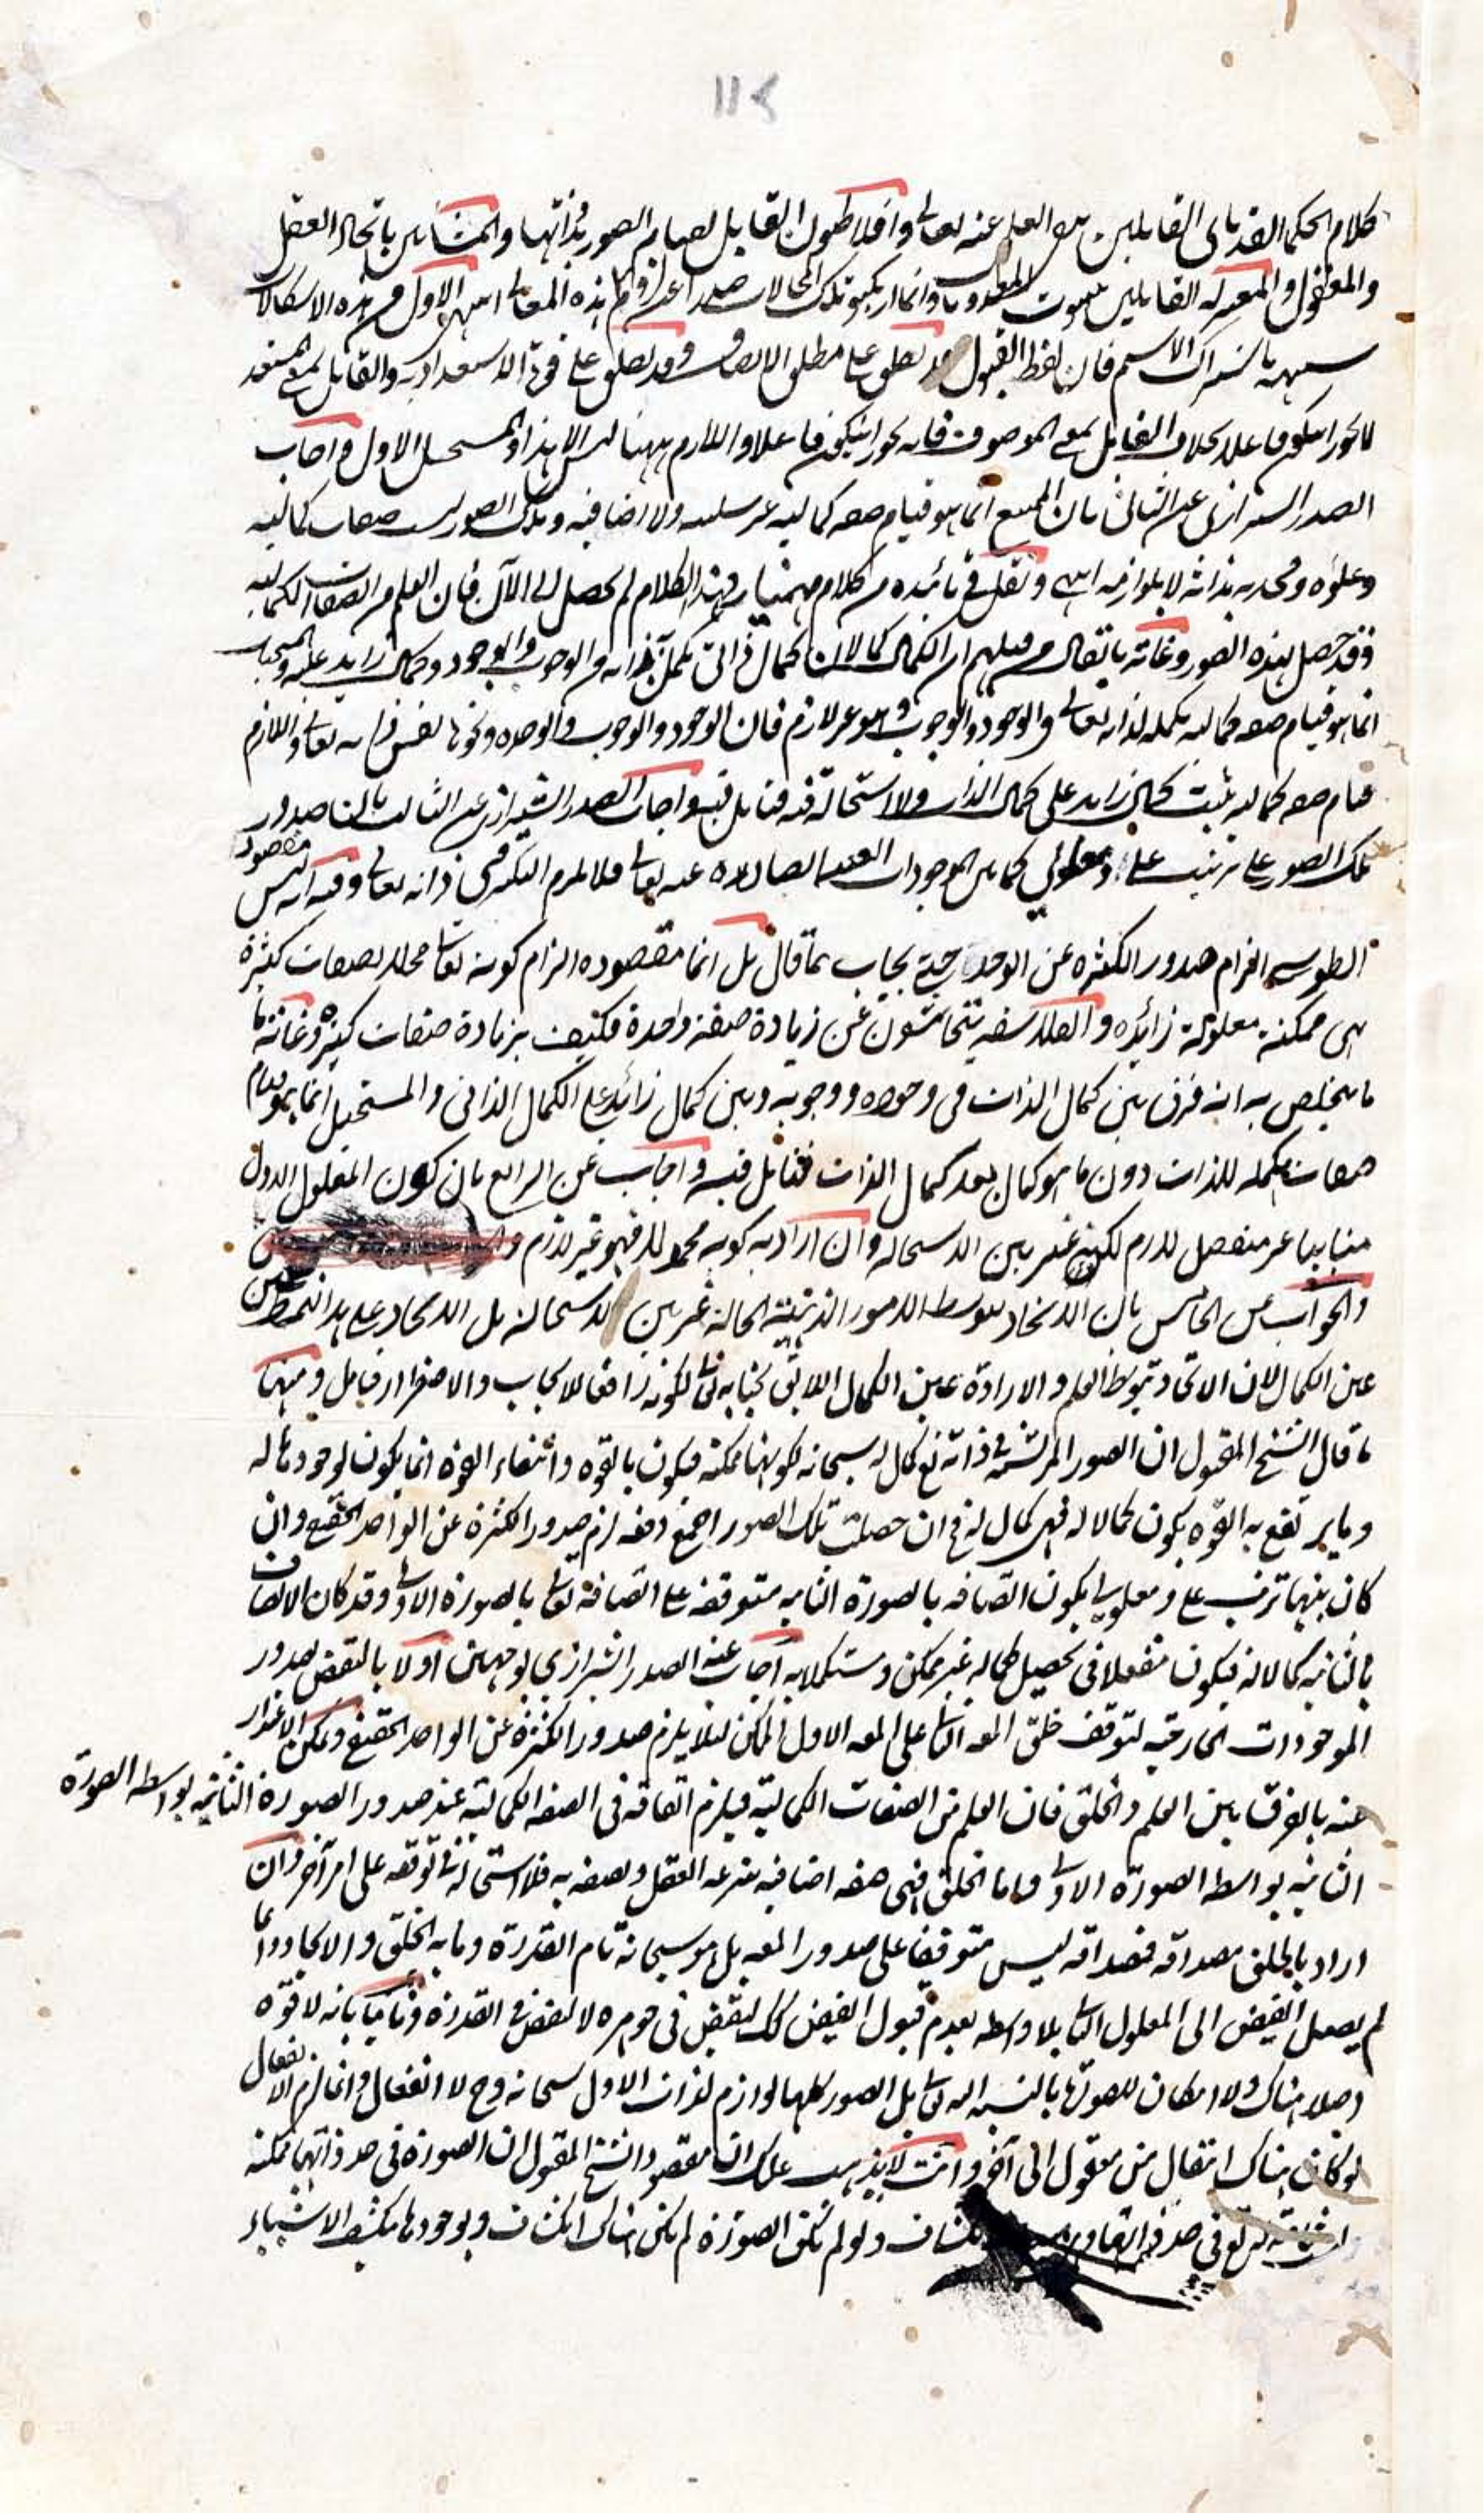 ١١٢
كلام الحكماء القدماء القائلين بنفي العلم عنه تعالى وافلاطون القايل لقيام الصور بذاتها والمشائين باتحاد العقل
والمعقول والمعتزله القائلين بثبوت المعدومات وانما ارتكبوا تلك المحالات حذرا عن التزام هذه المعاني انتهى الاول من هذه الاشكالات
باشتراك الاسم فان لفظ القبول قد يطلق على مطلق الاتصاف وقد يطلق على قوة الاستعدادية والقابل بمعنى المستعد
لا يجوز ان يكون فاعلا بخلاف القابل بمعنى الموصوف فانه يجوز ان يكون فاعلا واللازم ههنا ليس الا هذا والمستحيل الاول واجاب
الصدر الشيرازي عن الثاني بان الممتنع انما هو قيام صفه كماليه غير سلبيه ولا اضافيه وتلك الصور ليست صفات كماليه
وعلوه ومجده بذاته لا بلوازمه انتهى ونقل في تائيده من كلام بهمنيار وهذا الكلام لم يحصل لي الى الآن فان العلم من الصفات الكماليه
وقد حصل بهذه الصور وغاية ما يقال من قبلهم ان الكمال كمالان كمال ذاتي من الوجوب والوجود وكمال زايد عليه والمستحيل
انما هو قيام صفه كماليه مكمله لذاته تعالى في الوجود والوجوب وهو غير لازم فان الوجود والوجوب والوحده ونحوها نفس ذاته تعالى واللازم
قيام صفه كماليه تثبت كمالا زايد على كمال الذات ولا استحالة فيه فتامل فيه واجاب الصدر الشيرازي عن الثالث بالتزام صدور
تلك الصور على ترتيب علي ومعلولي كما في الموجودات العينيه الصادره عنه تعالى فلا يلزم التكثر في ذاته تعالى وفيه انه ليس مقصود
الطوسي الزام صدور الكثره عن الواحد حتى يجاب بما قال بل انما مقصوده الزام كونه تعالى محلا لصفات كثيرة
هي ممكنة معلولة زائده والفلاسفه يتحاشون عن زيادة صفة واحدة فكيف بزيادة صفات كثيره وغاية ما
ما يتخلص به انه فرق بين كمال الذات في وجوده ووجوبه وبين كمال زائد على الكمال الذاتي والمستحيل انما هو قيام
صفات مكمله للذات دون ما هو كمال بعد كمال الذات فتامل فيه واجاب عن الرابع بان كون المعلول الاول
مباينا غير منفصل لازم لكنه غير بين الاستحاله وان اراد به كونه محمولا فهو غير لازم
والجواب عن الخامس بان الاتحاد بتوسط الامور الذهنية الحالة غير بين الاستحالة بل الاتحاد على هذا النمط عين
عين الكمال لان الاتحاد بتوسط العلم والارادة عين الكمال اللائق بجنابه تعالى لكونه رافعا للايجاب والاضطرار فتامل ومنها
ما قال الشيخ المقتول ان الصور المرتسمة في ذاته تع كمال له سبحانه لكونها ممكنه فيكون بالقوه وانتفاء القوه انما يكون لوجودها له
وما يرتفع به القوه يكون كمالا له فهي كمال له فان حصلت تلك الصور اجمع دفعه لزم صدور الكثرة عن الواحد الحقيقي وان
كان بينها ترتيب علي ومعلولي يكون اتصافه بالصورة الثانيه متوقفه على اتصافه تعالى بالصورة الاولى وقد كان الاتصاف
بالثانيه كمالا له فيكون منفعلا في تحصيل كماله غير ممكن ومستكملا به اجاب عنه الصدر الشيرازي بوجهين اولا بالنقض بصدور
الموجودات الخارجيه لتوقف خلق المعلول الثاني على المعلول الاول الممكن لئلا يلزم صدور الكثرة عن الواحد الحقيقي ويمكن الاعتذار
عنه بالفرق بين العلم والخلق فان العلم من الصفات الكماليه فيلزم اتصافه في الصفه الكماليه عند صدور الصورة الثانيه بواسطه الصورة
الثانيه بواسطه الصورة الاولى واما الخلق فهي صفه اضافيه ينتزعه العقل ويصفه به فلا استحاله في توقفه على امر آخر وان
اراد بالخلق مصداقه فمصداقه ليس متوقفا على صدور المعلول بل هو سبحانه تام القدرة وما به الخلق والايجاد وانما
لم يصل الفيض الى المعلول الثاني بلا واسطه لعدم قبول الفيض لنقص في جوهره لا لنقص في القدرة وثانيا بانه لا قوة
اصلا هناك ولا امكان للصور بالنسبه اليه تعالى بل الصور كلها لوازم لذات الاول سبحانه وح لا انفعال وانما لزم الانفعال
لو كان هناك انتقال من معقول الى آخر وانت لا يذهب عليك ان مقصود الشيخ المقتول ان الصورة في حد ذاتها ممكنه
ولو لم تكن الصورة لم يكن هناك انكشاف وبوجودها ينكشف الاشياء